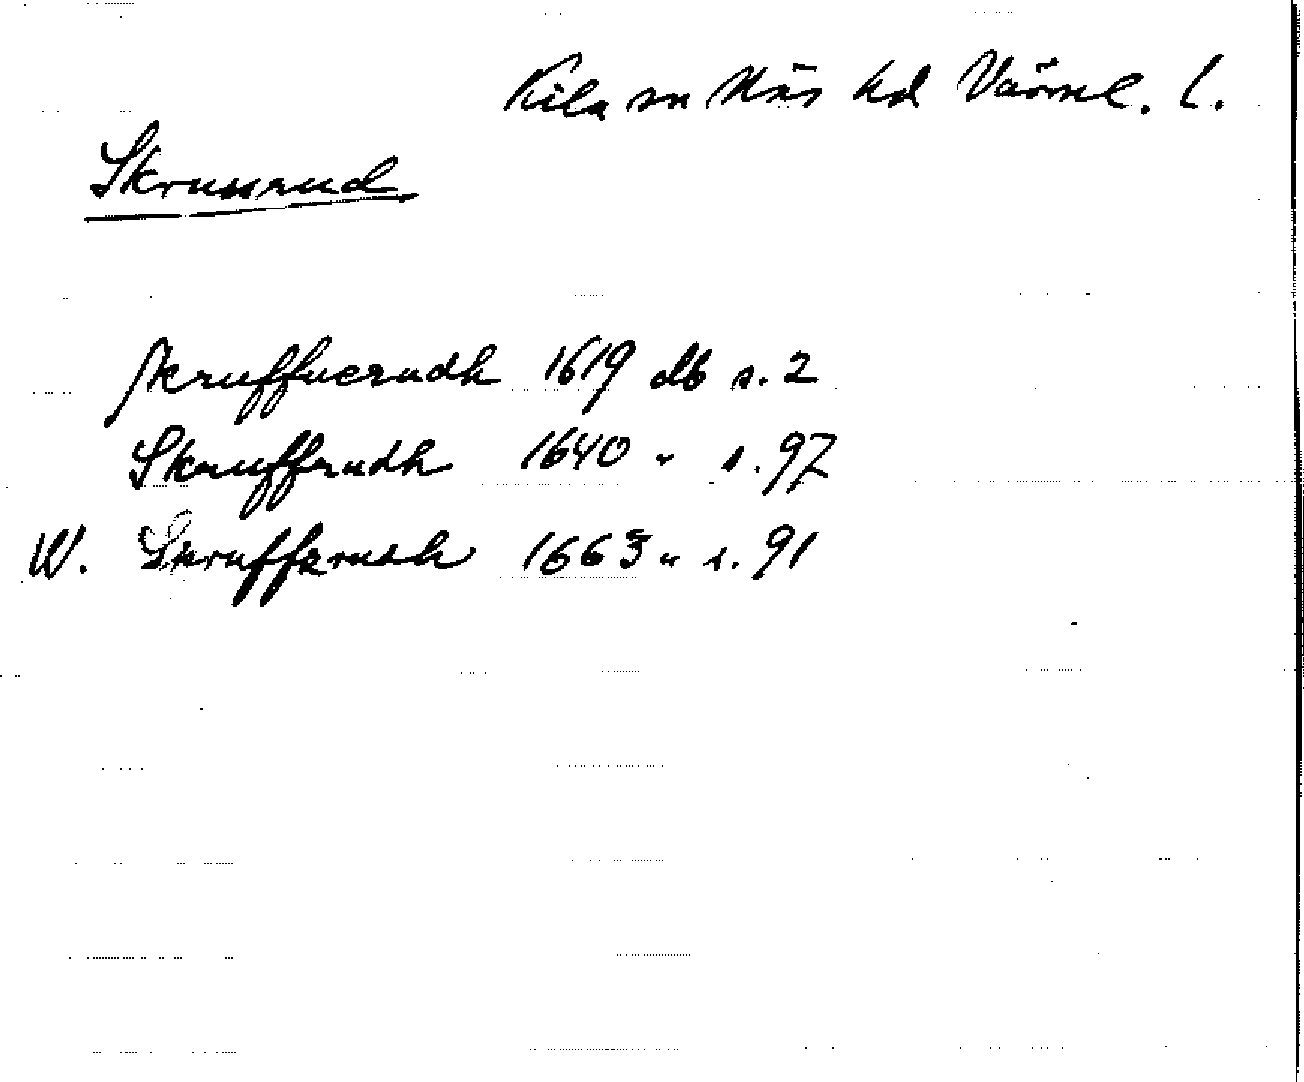 Kila sn Näs hd Värml. l.
Skruserud
skruffuerudh 1619 db s. 2
Skrufferudh 1640 " s. 97
W. Skrufferudh 1663 " s. 91